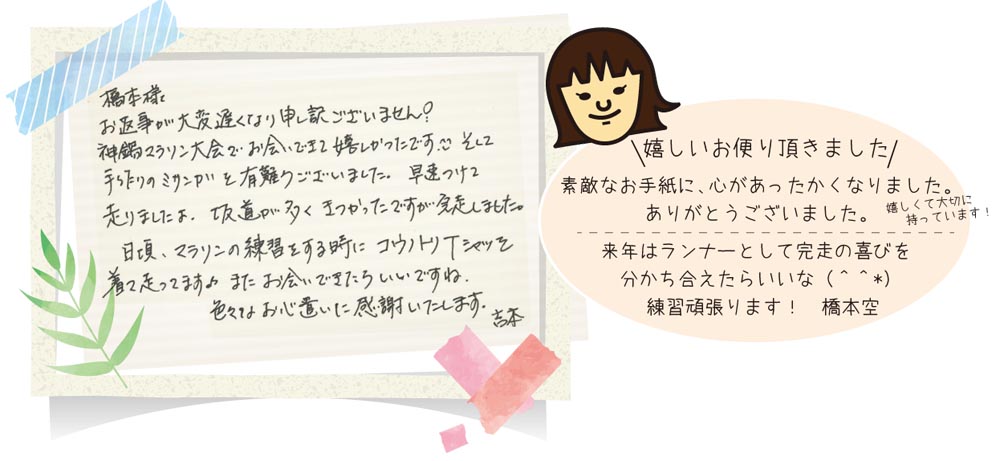 橋本様
お返事が大変遅くなり申し訳ございません?
神鍋マラソン大会でお会いできて嬉しかったです☺ そして
手作りのミサンガを有難うございました。早速つけて
走りましたよ。坂道が多くきつかったですが完走しました。
日頃、マラソンの練習をする時にコウノトリTシャツを
着て走ってます♪ またお会いできたらいいですね.
色々なお心遣いに感謝いたします.
吉本
\嬉しいお便り頂きました/
素敵なお手紙に、心があったかくなりました。
ありがとうございました。
嬉しくて大切に
持っています!
来年はランナーとして完走の喜びを
分かち合えたらいいな (^ ^*)
練習頑張ります! 橋本空